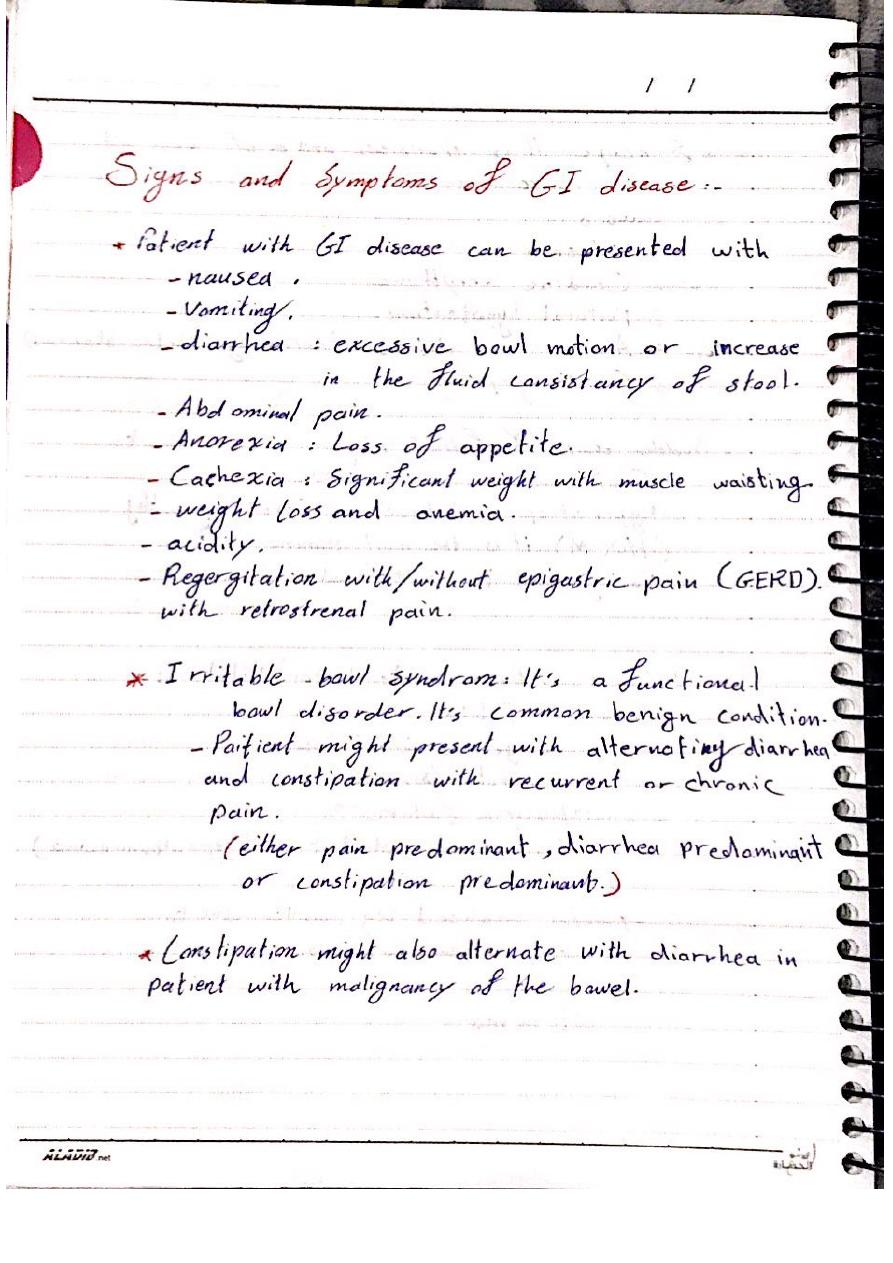 / /
Signs and Symptoms of GI disease :-
* Patient with GI disease can be presented with
- nausea .
- Vomiting.
- diarrhea : excessive bowl motion or increase
in the fluid consistancy of stool.
- Abdominal pain.
- Anorexia : Loss of appetite.
- Cachexia : Significant weight with muscle waisting
- weight loss and anemia.
- acidity.
- Regergitation with/without epigastric pain (GERD).
with retrostrenal pain.
* Irritable bowl syndrom: It's a functional
bowl disorder. It's common benign condition.
- Paitient might present with alternating diarrhea
and constipation with recurrent or chronic
pain.
(either pain predominant, diarrhea predominant
or constipation predominant.)
* Constipation might also alternate with diarrhea in
patient with malignancy of the bowel.
ALADIB.net